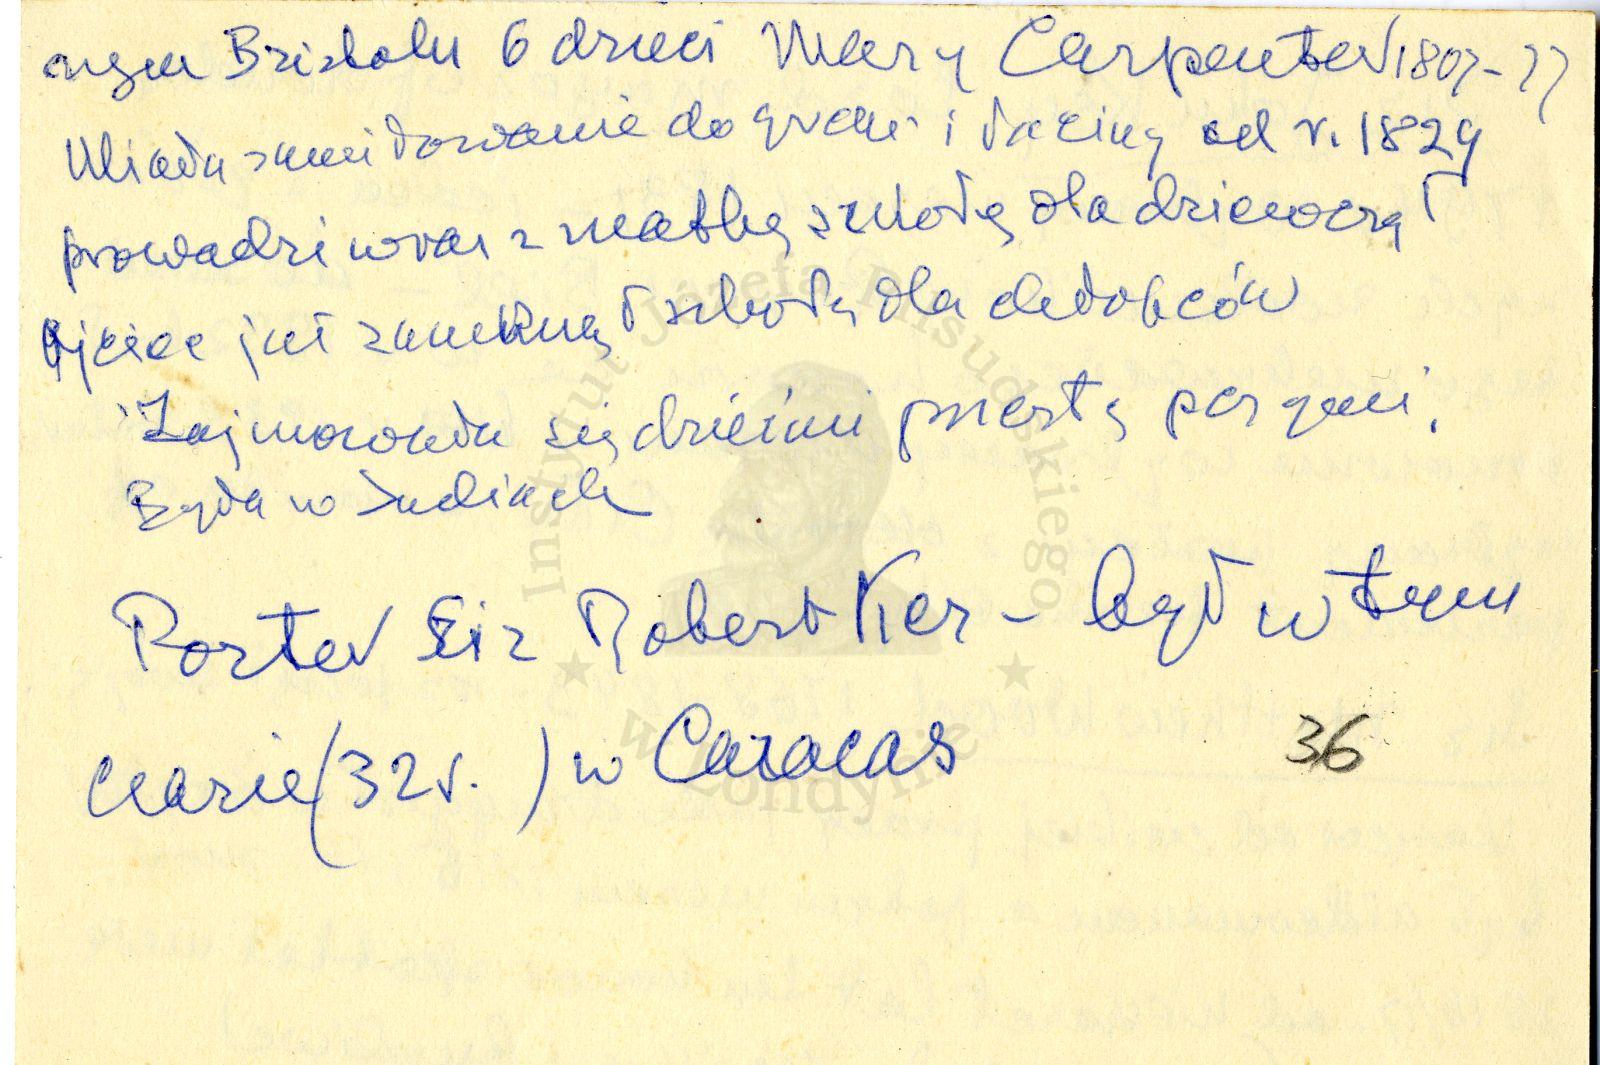 Bristolu 6 dzieci Mary Carpenter 1807-77
Miała zamiłowanie do greki i łaciny od r. 1829
prowadzi wraz z matką szkołę dla dziewcząt
Ojciec już zamknął szkołę dla chłopców
Zajmowała się dziećmi
Była w Indiach
Porter Sir Robert Ker - był w tym
czasie (32 r. ) w Caracas
36
Instytut Józefa Piłsudskiego
w Londynie